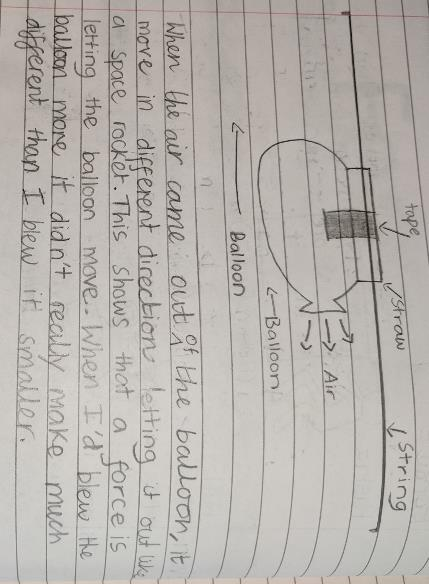 tape
Straw
String
Air
Balloon
Balloon
When the air came out of the balloon, it
move in different direction letting it out like
a space rocket. This shows that a force is
letting the balloon move. When I'd blew the
balloon more it didn't really make much
different than I blew it smaller.